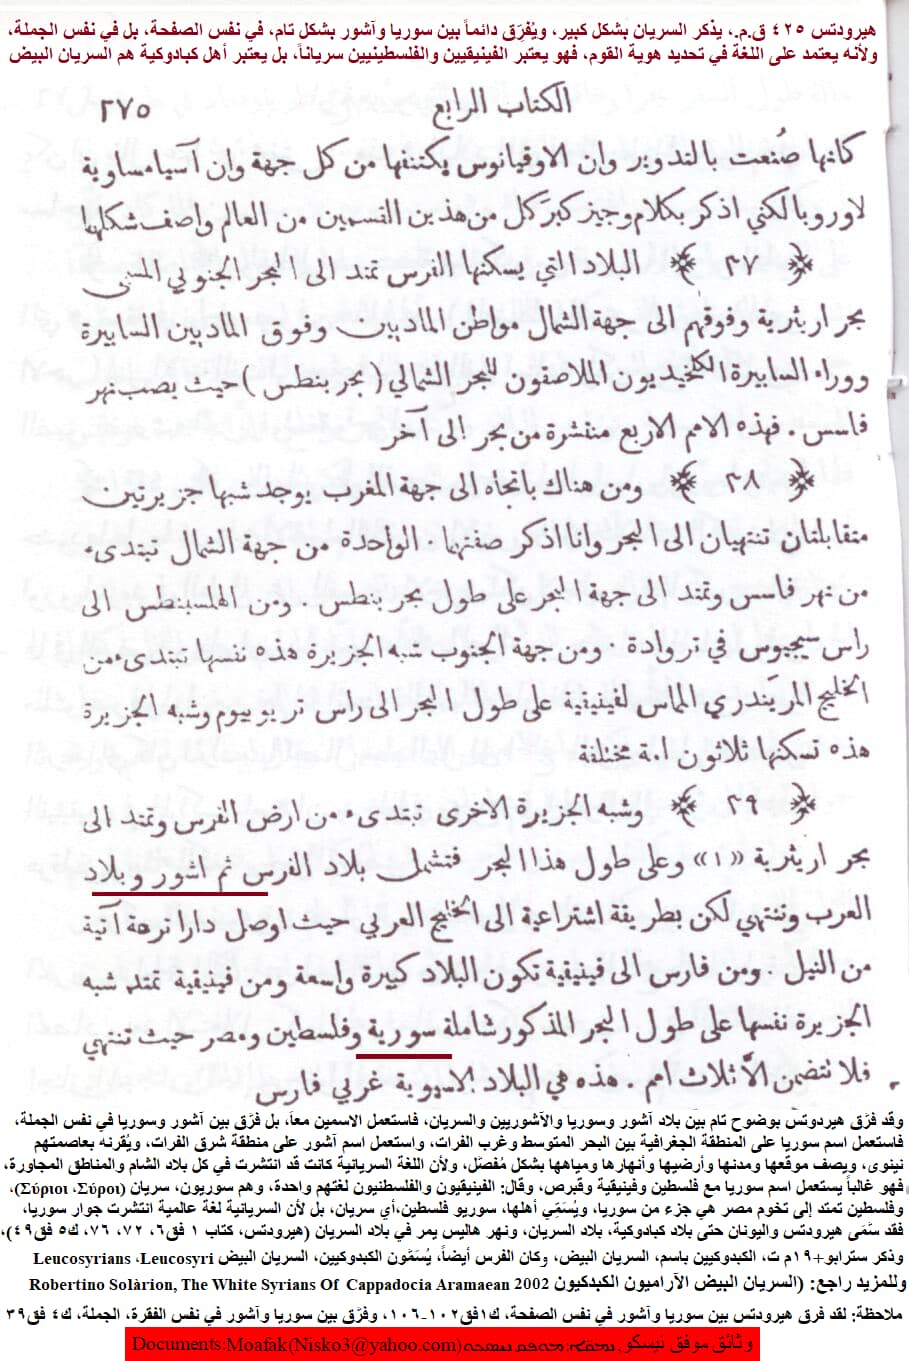 هيرودتس ٤٢٥ ق.م.، يذكر السريان بشكل كبير، ويُفرِّق دائماً بين سوريا وآشور بشكل تام، في نفس الصفحة، بل في نفس الجملة،
ولأنه يعتمد على اللغة في تحديد هوية القوم، فهو يعتبر الفينيقيين والفلسطينيين سرياناً، بل يعتبر أهل كبادوكية هم السريان البيض
الكتاب الرابع ٢٧٥
كانها صُنعت بالتدوير وان الاوقيانوس يكتنفها من كل جهة وان آسيا مساوية
لاوروبا لكني اذكر بكلام وجيز كبر كل من هذين القسمين من العالم واصف شكلها
﴿ ٣٧ ﴾ البلاد التي يسكنها الفرس تمتد الى البحر الجنوبي المسى
بحر اريثرية وفوقهم الى جهة الشمال مواطن الماديين وفوق الماديين السابيرة
ووراء السابيرة الكلخيديون الملاصقون للبحر الشمالي (بحر بنطس) حيث يصب نهر
فاسس . فهذه الامم الاربع منتشرة من بحر الى آخر
﴿ ٣٨ ﴾ ومن هناك باتجاه الى جهة المغرب يوجد شبها جزيرتين
متقابلتان تنتهيان الى البحر وانا اذكر صفتهما . الواحدة من جهة الشمال تبتدىء
من نهر فاسس وتمتد الى جهة البحر على طول بحر بنطس . ومن الهلسبنطس الى
راس سيجيوس في تروادة . ومن جهة الجنوب شبه الجزيرة هذه نفسها تبتدىء من
الخليج المريندري الماس لفينيقية على طول البحر الى راس تريوبيوم وشبه الجزيرة
هذه تسكنها ثلاثون امة مختلفة
﴿ ٣٩ ﴾ وشبه الجزيرة الاخرى تبتدىء من ارض الفرس وتمتد الى
بحر اريثرية «١» وعلى طول هذا البحر فتشمل بلاد الفرس ثم اشور وبلاد
العرب وتنتهي لكن بطريقة اشتراعية الى الخليج العربي حيث اوصل دارا ترعة آتية
من النيل . ومن فارس الى فينيقية تكون البلاد كبيرة واسعة ومن فينيقية تمتد شبه
الجزيرة نفسها على طول البحر المذكور شاملة سورية وفلسطين ومصر حيث تنتهي
فلا تتضمن الّا ثلاث امم . هذه هي البلاد الاسيوية غربي فارس
وقد فرَّق هيرودوتس بوضوح تام بين بلاد آشور وسوريا والآشوريين والسريان، فاستعمل الاسمين معاً، بل فرَّق بين آشور وسوريا في نفس الجملة،
فاستعمل اسم سوريا على المنطقة الجغرافية بين البحر المتوسط وغرب الفرات، واستعمل اسم آشور على منطقة شرق الفرات، ويُقرنه بعاصمتهم
نينوى، ويصف موقعها ومدنها وأرضيها وأنهارها ومياهها بشكل مُفصَّل، ولأن اللغة السريانية كانت قد انتشرت في كل بلاد الشام والمناطق المجاورة،
فهو غالباً يستعمل اسم سوريا مع فلسطين وفينيقية وقبرص، وقال: الفينيقيون والفلسطنيون لغتهم واحدة، وهم سوريون، سريان (Σύριοι ،Σύροι)،
وفلسطين تمتد إلى تخوم مصر هي جزء من سوريا، ويُسَمِّي أهلها، سوريو فلسطين،أي سريان، بل لأن السريانية لغة عالمية انتشرت جوار سوريا،
فقد سمَّى هيرودتس واليونان حتى بلاد كبادوكية، بلاد السريان، ونهر هاليس يمر في بلاد السريان (هيرودتس، كتاب ١ فق٦، ٧٢، ٧٦، ك٥ فق٤٩)،
وذكر سترابو+١٩م ت، الكبدوكيين باسم، السريان البيض، وكان الفرس أيضاً، يُسَمَّون الكبدوكيين، السريان البيض Leucosyrians ،Leucosyri
وللمزيد راجع: (السريان البيض الآراميون الكبدكيون Robertino Solàrion, The White Syrians Of Cappadocia Aramaean 2002
ملاحظة: لقد فرق هيرودتس بين سوريا وآشور في نفس الصفحة، ك١فق١٠٢-١٠٦، وفرَّق بين سوريا وآشور في نفس الفقرة، الجملة، ك٤ فق٣٩
وثائق موفق نيسكو, Documents:Moafak(Nisko3@yahoo.com)